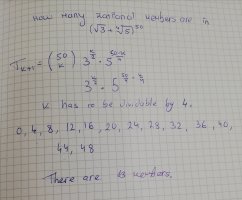 how many rational numbers are in
(√3 + ∜5)^50
T_{k+1} = (50 k) 3^{k/2} · 5^{(50-k)/4}
3^{k/2} · 5^{50/4 - k/4}
k has to be dividable by 4.
0, 4, 8, 12, 16, 20, 24, 28, 32, 36, 40,
44, 48
There are 13 numbers.